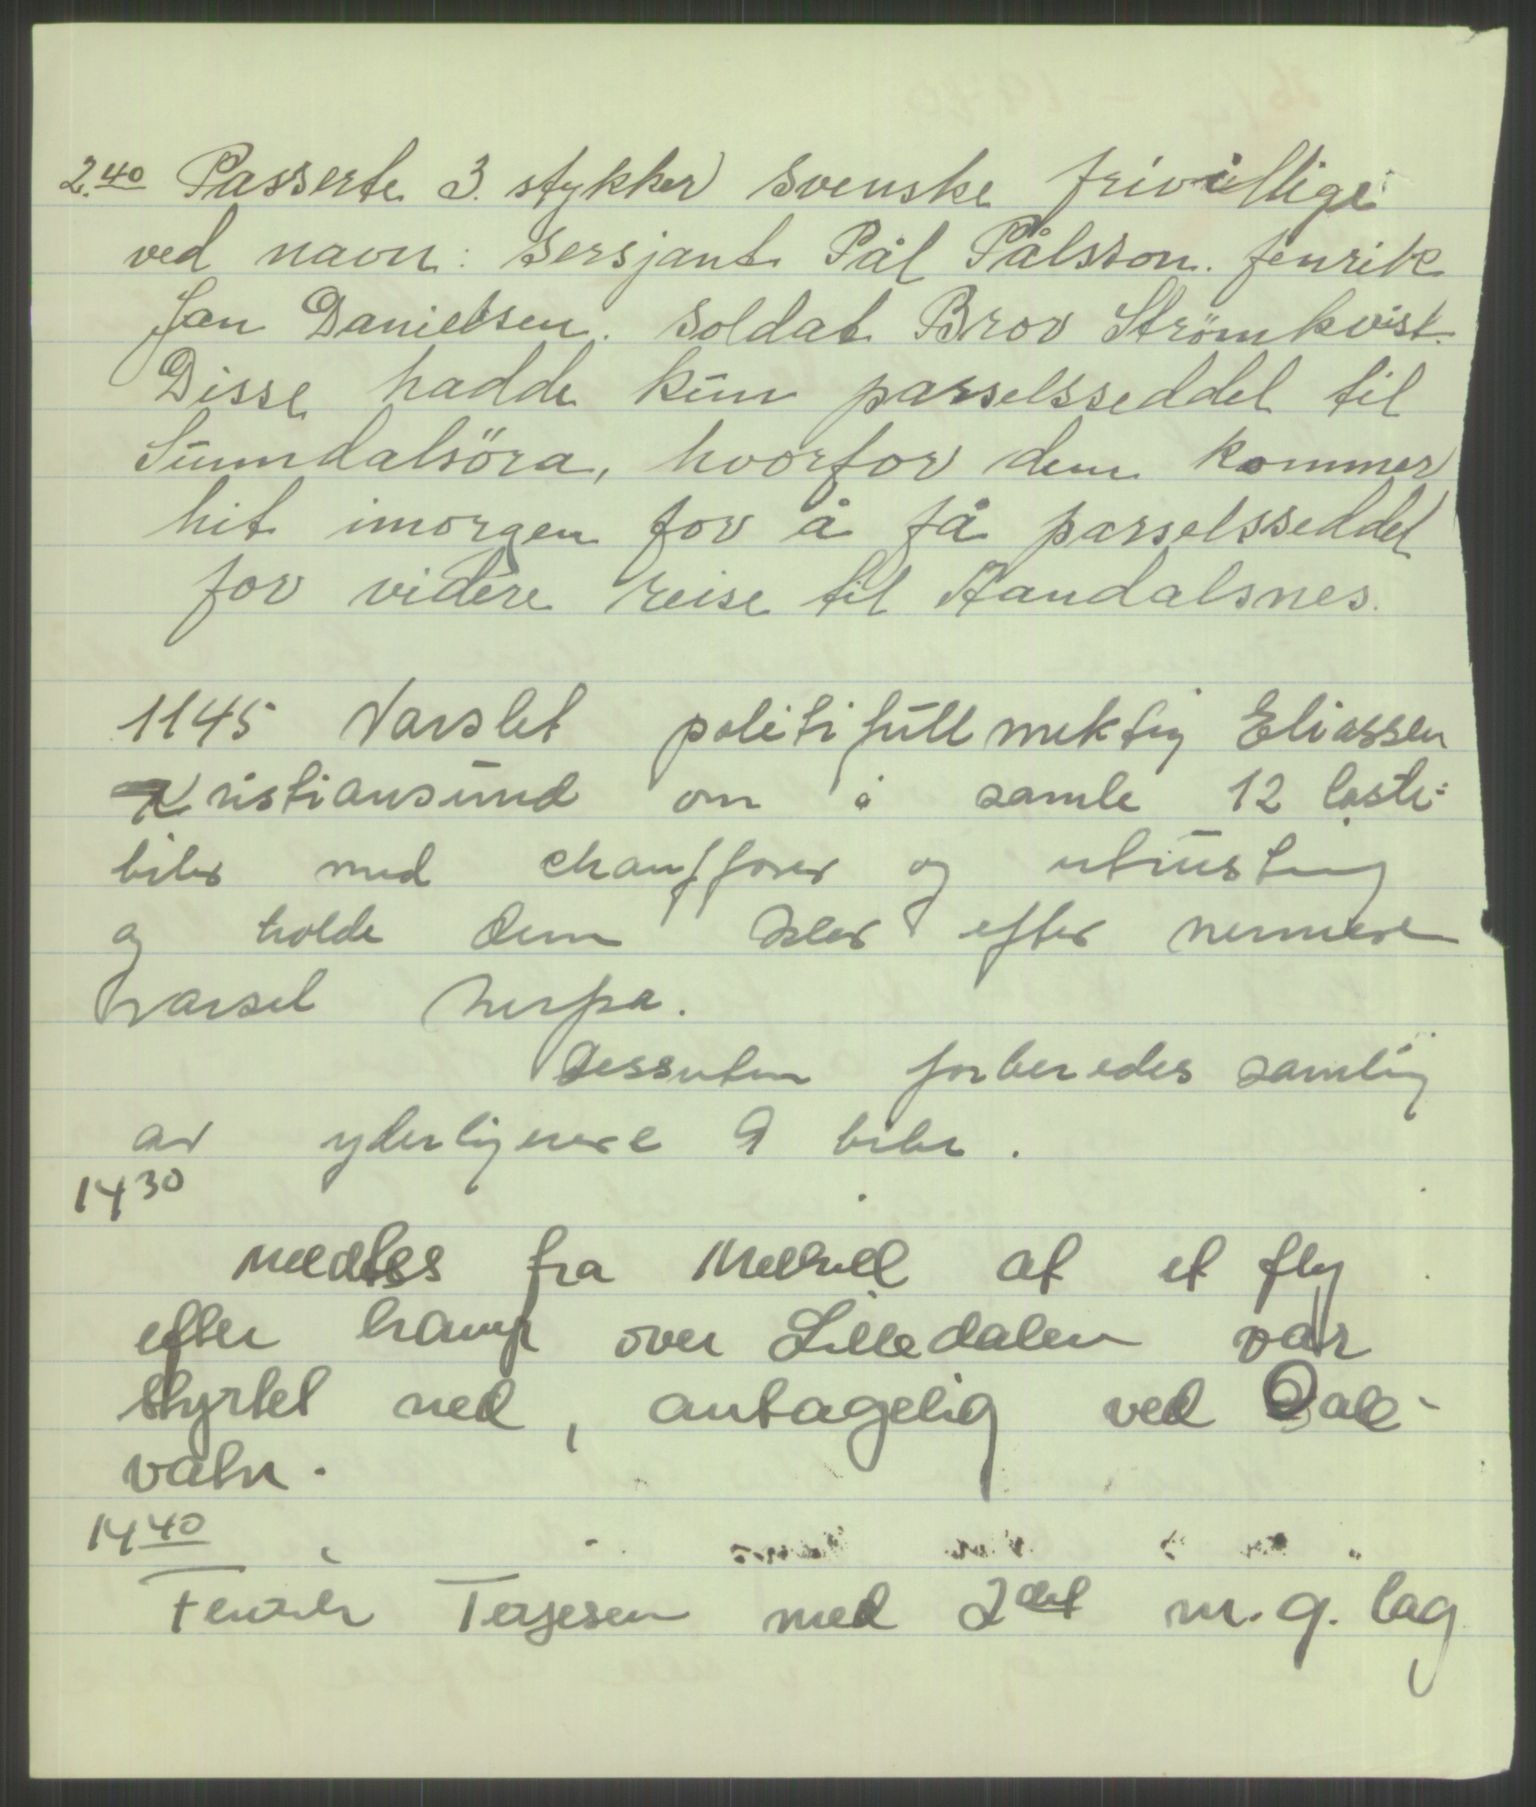 2.40 Passerte 3. stykker svenske frivillige
ved navn: sersjant Pål Pålsson. fenrik
Jan Danielsen. soldat Brov Strömkvist.
Disse hadde kun passelsseddel til
Sunndalsöra, hvorfor dem kommer
hit imorgen for å få passelsseddel
for videre reise til Aandalsnes.
1145 Varslet politifullmektig Eliassen
Kristiansund om å samle 12 laste-
biler med chaufforer og utrustning
og holde dem klar efter nermere
varsel herfra.
Dessuten forberedes samling
av yderligere 9 biler.
14 30
Meldtes fra at et fly
efter kamp over Lilledalen var
styrtet ned, antagelig ved Dale-
vatn.
14 40
Fenrik Terjesen med 2det m.g. lag